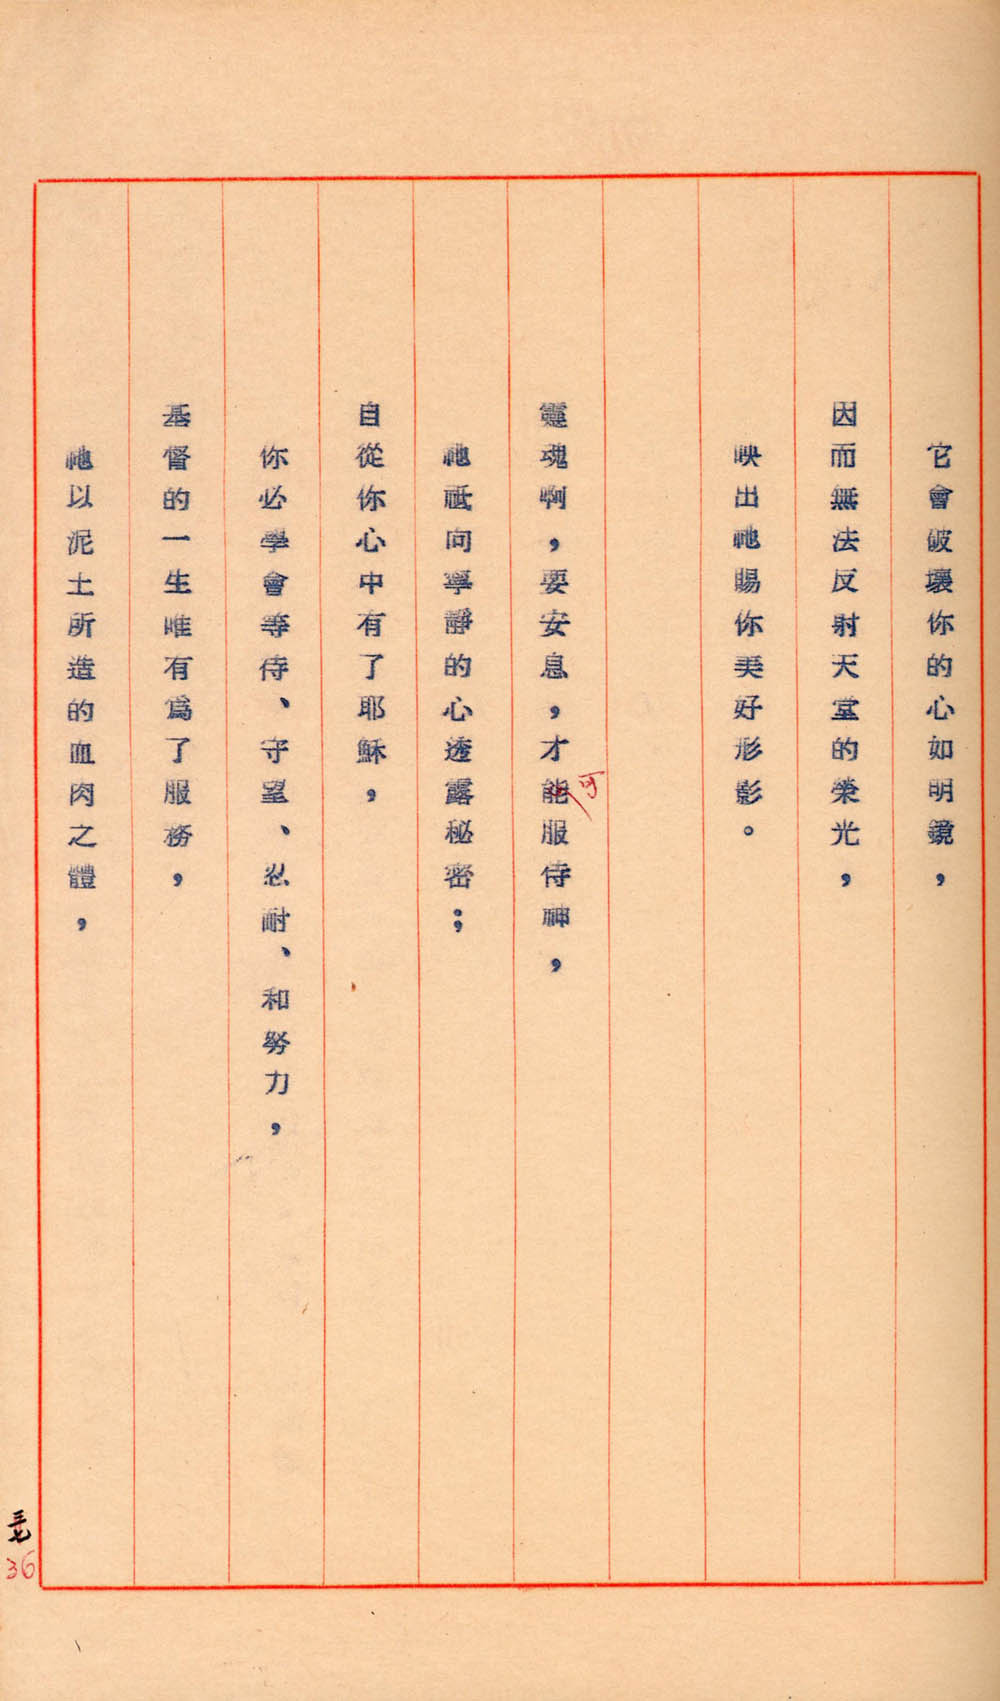 它會破壞你的心如明鏡，
因而無法反射天堂的榮光，
映出祂賜你美好形影。
靈魂啊，要安息，才能服侍神，
可
祂祗向寧靜的心透露秘密；
自從你心中有了耶穌，
你必學會等待、守望、忍耐、和努力，
基督的一生唯有爲了服務，
祂以泥土所造的血肉之體，
三七
36